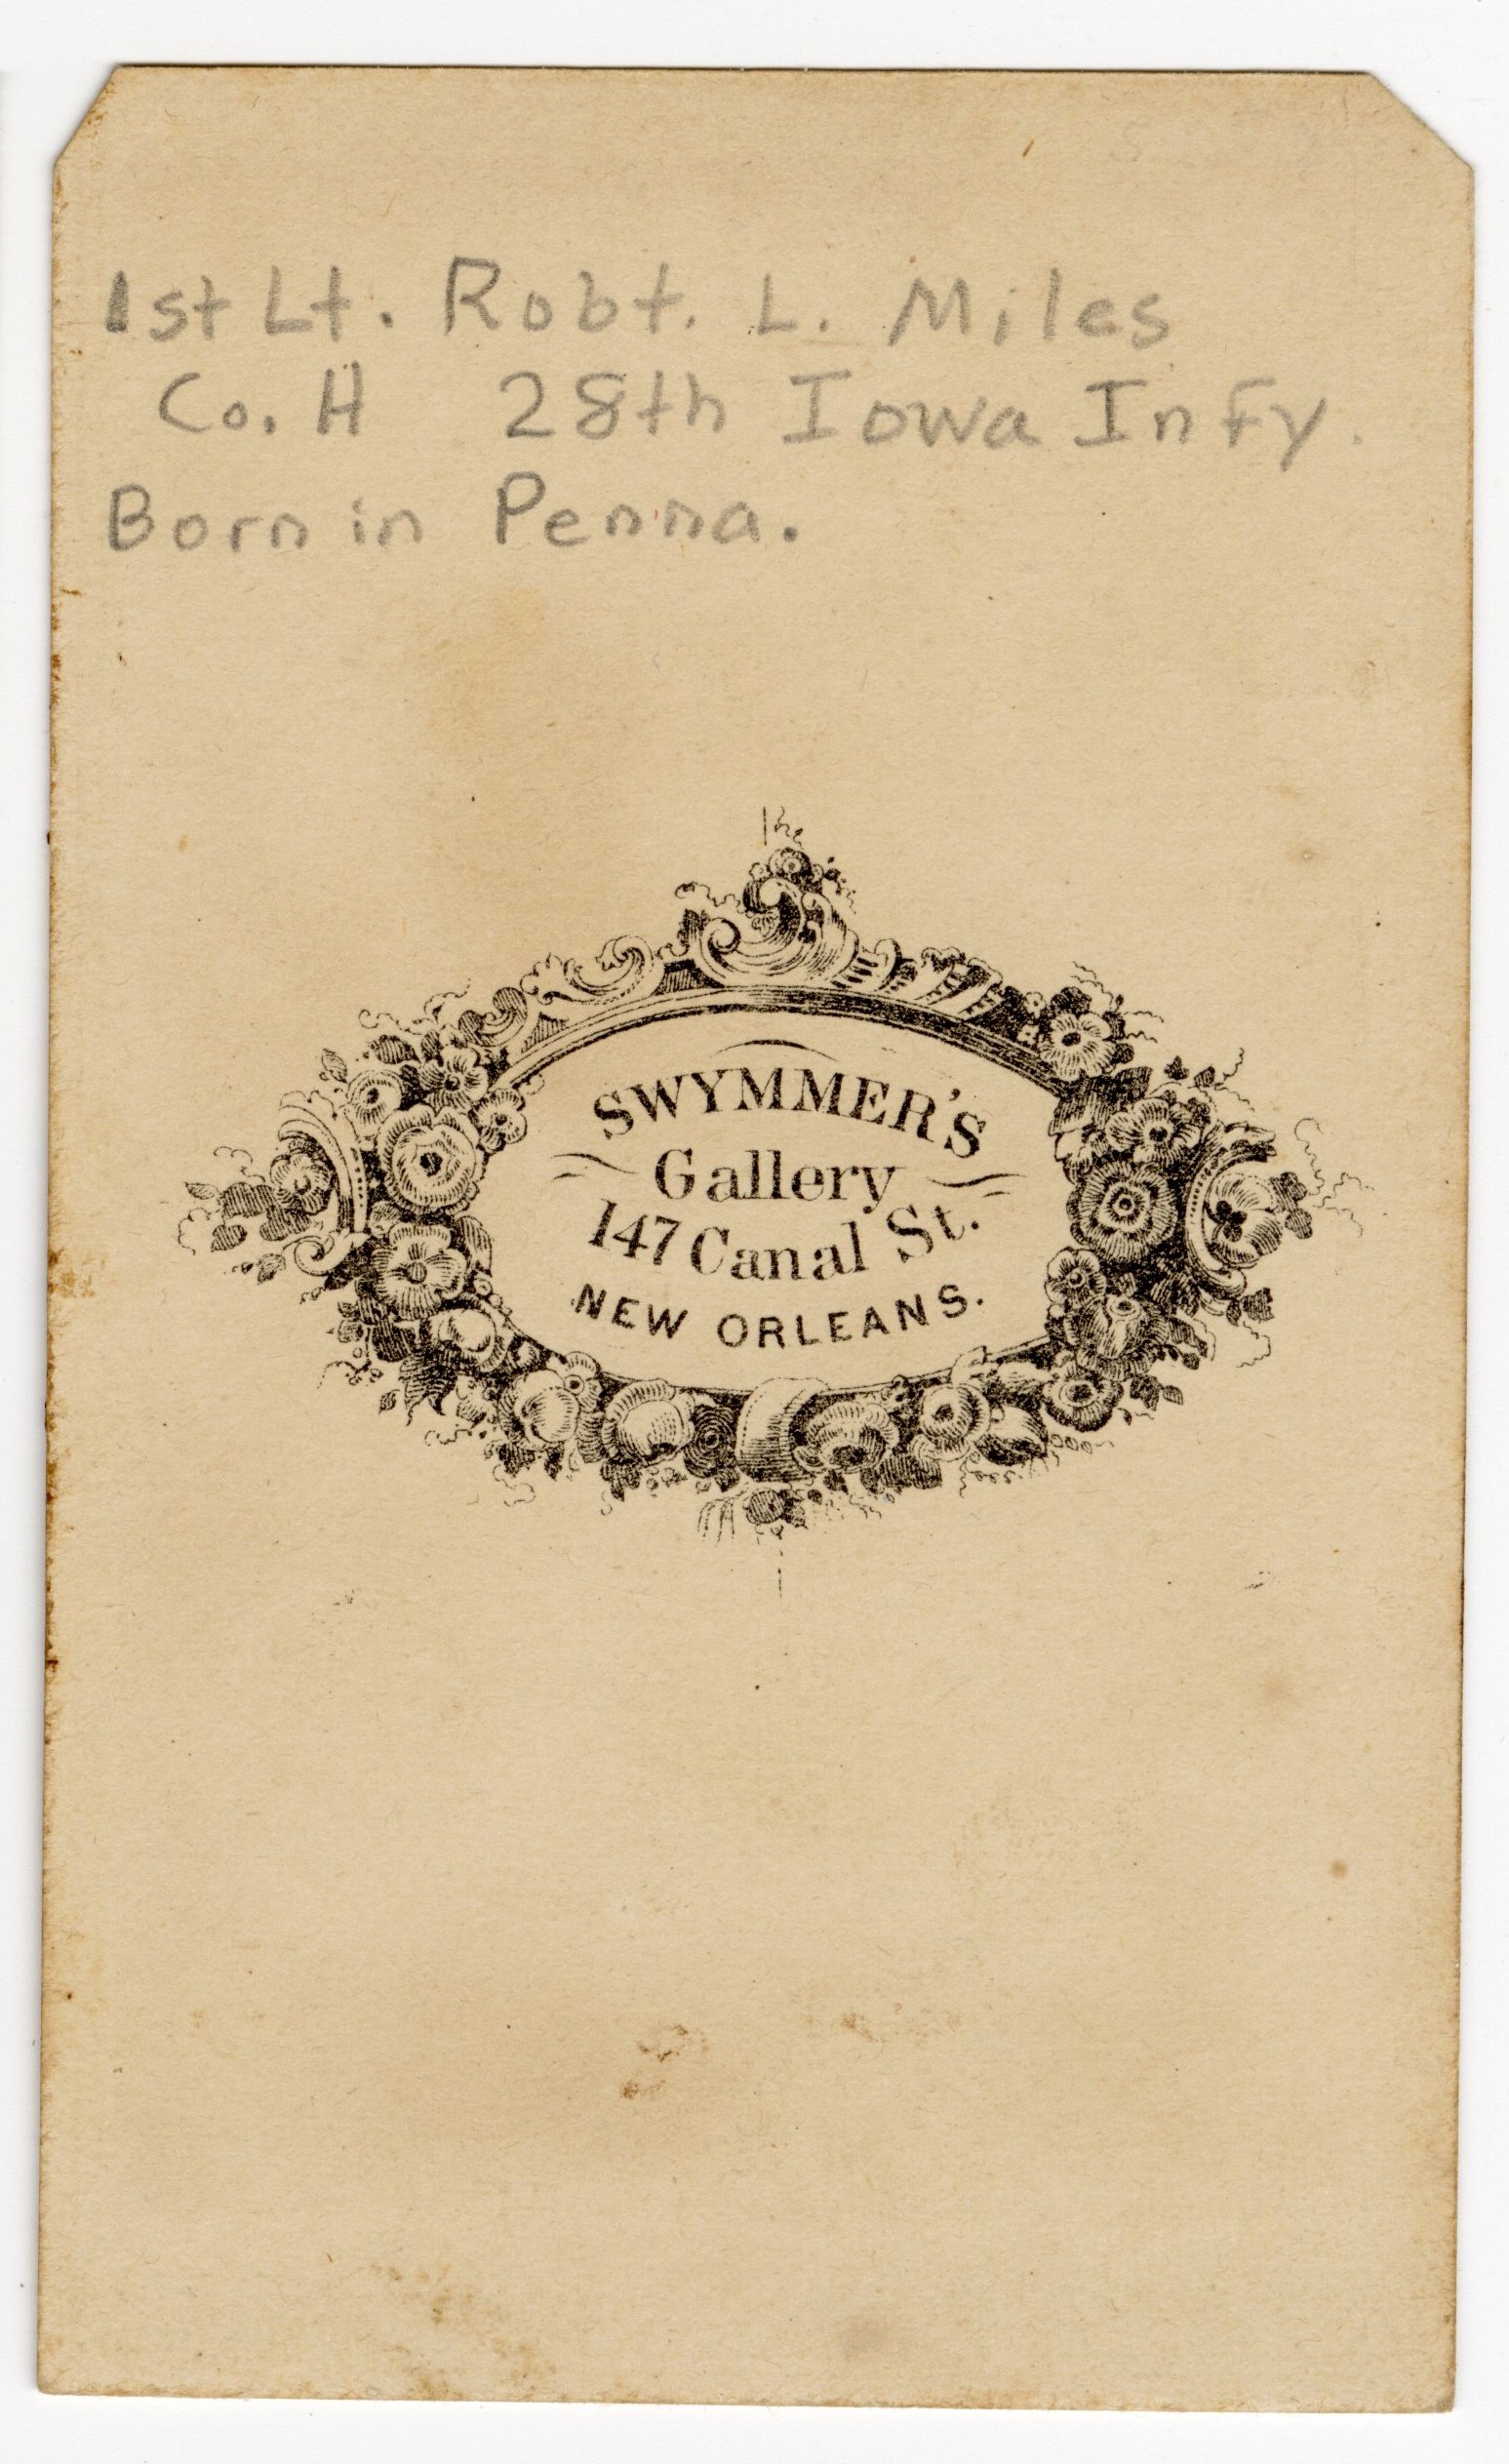 1st Lt. Robt. L. Miles
Co. H 28th Iowa Infy.
Born in Penna.
SWYMMER'S
Gallery
147 Canal St.
NEW ORLEANS.